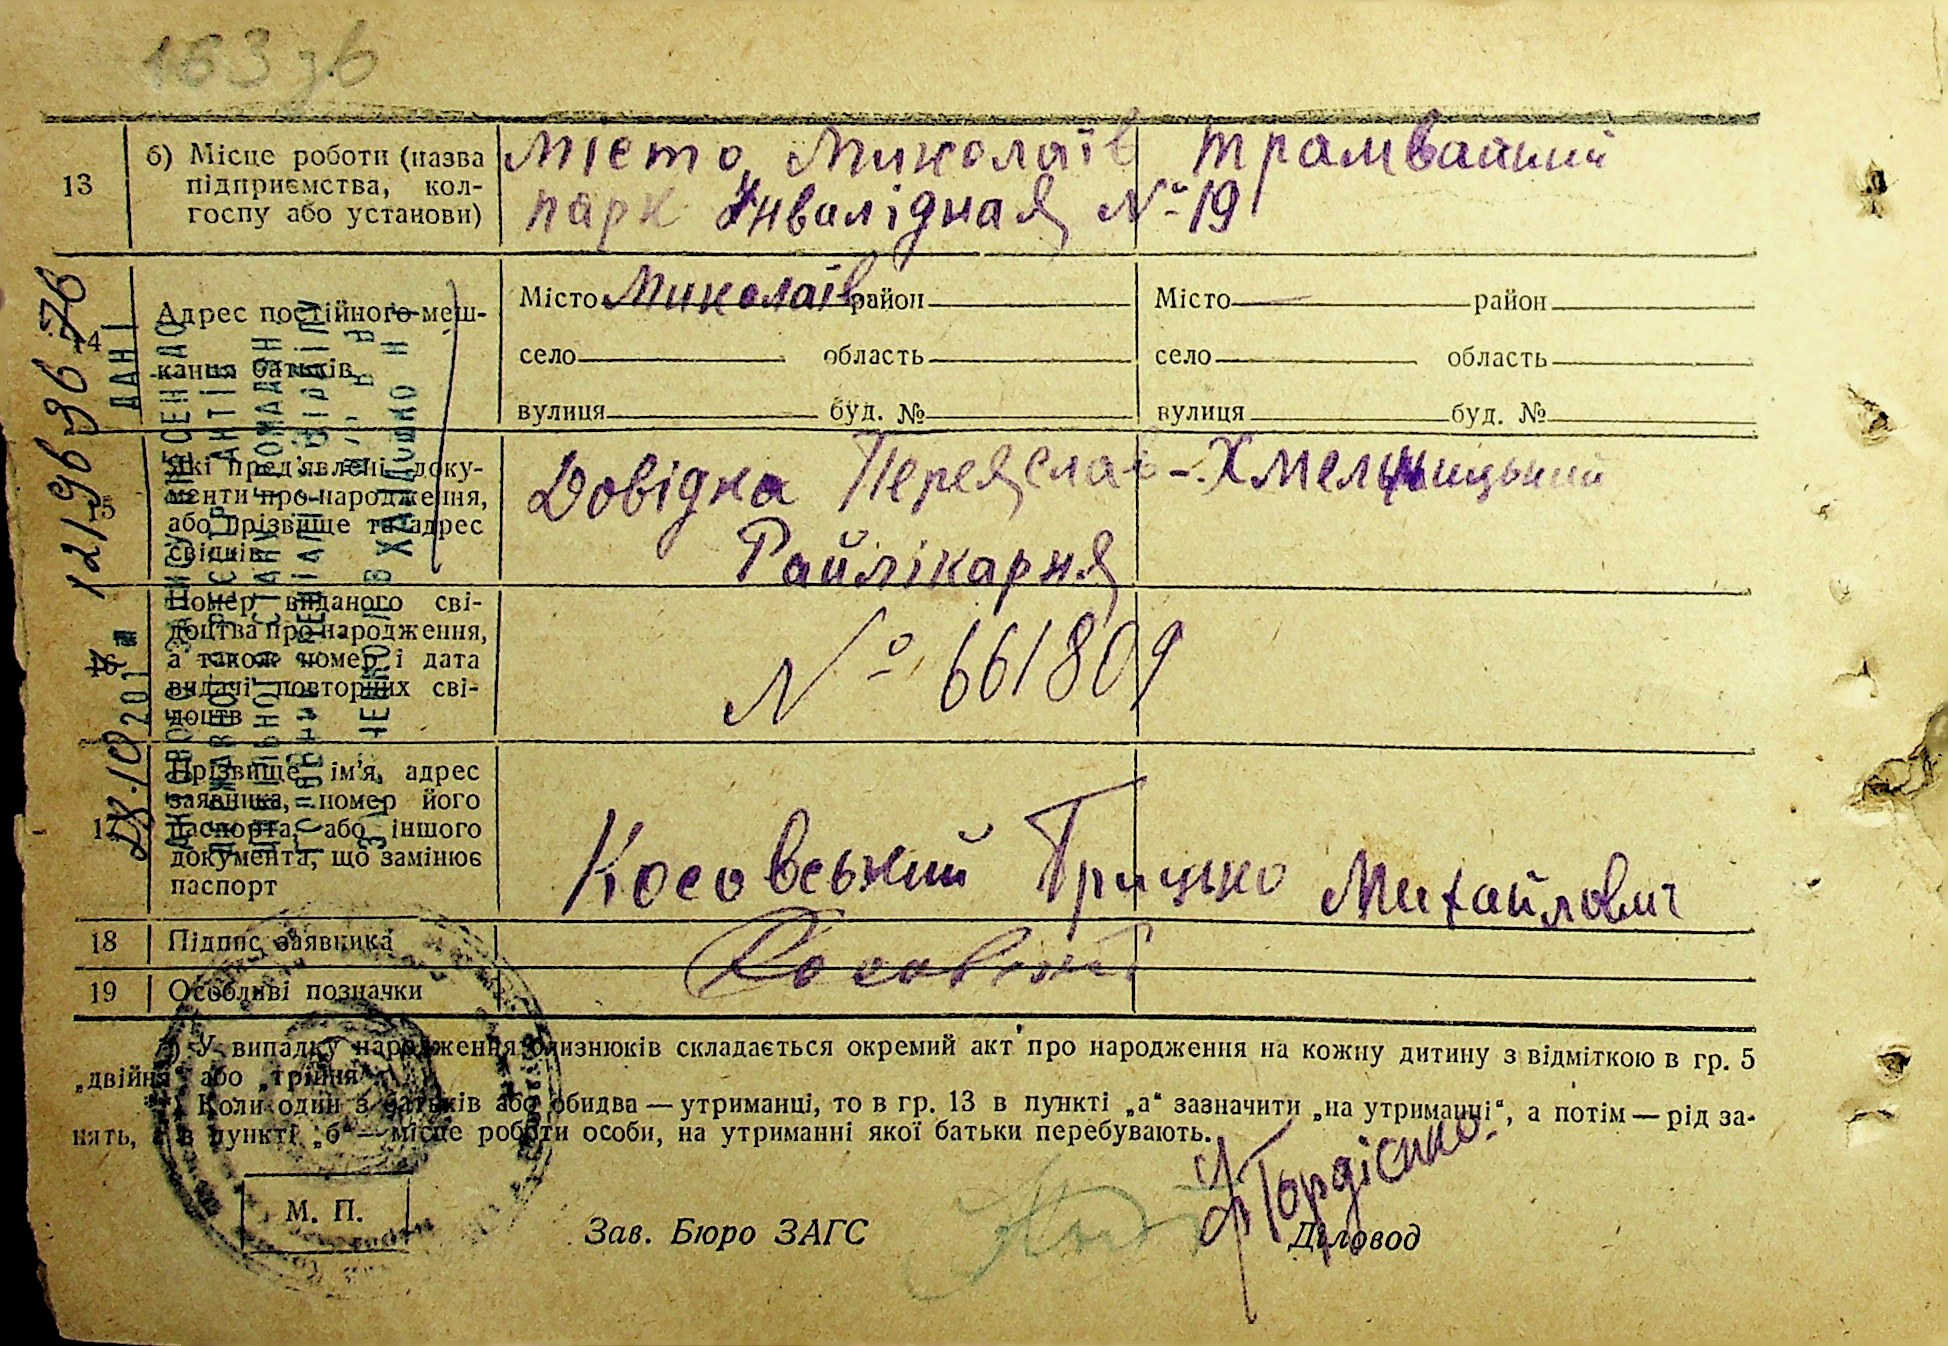 163 зв
13
б) Місце роботи (назва
підприємства, кол-
госпу або установи)
Місто Миколаїв Трамвайний
парк Інвалідная № 19
14
Адрес постійного меш-
кання батьків
Місто Миколаїв район
село область
вулиця буд. №
Місто район
село область
вулиця буд. №
15
Які пред'явлені доку-
менти про народження,
або прізвище та адрес
свідків
Довідка Переяслав-Хмельницький
Райлікарня
16
Номер виданого сві-
доцтва про народження,
а також номер і дата
видачі повторних сві-
доцтв
№ 661809
17
Прізвище, ім'я, адрес
заявника, номер його
паспорта, або іншого
документа, що замінює
паспорт
Косовський Грицько Михайлович
18
Підпис заявника
Косовський
19
Особливі позначки
У випадку народження близнюків складається окремий акт про народження на кожну дитину з відміткою в гр. 5
„двійня“ або „трійня“.
Коли один з батьків або обидва — утриманці, то в гр. 13 в пункті „а“ зазначити „на утриманні“, а потім — рід за-
нять, а в пункті „б“ — місце роботи особи, на утриманні якої батьки перебувають.
М. П.
Зав. Бюро ЗАГС
Гордієнко
Діловод